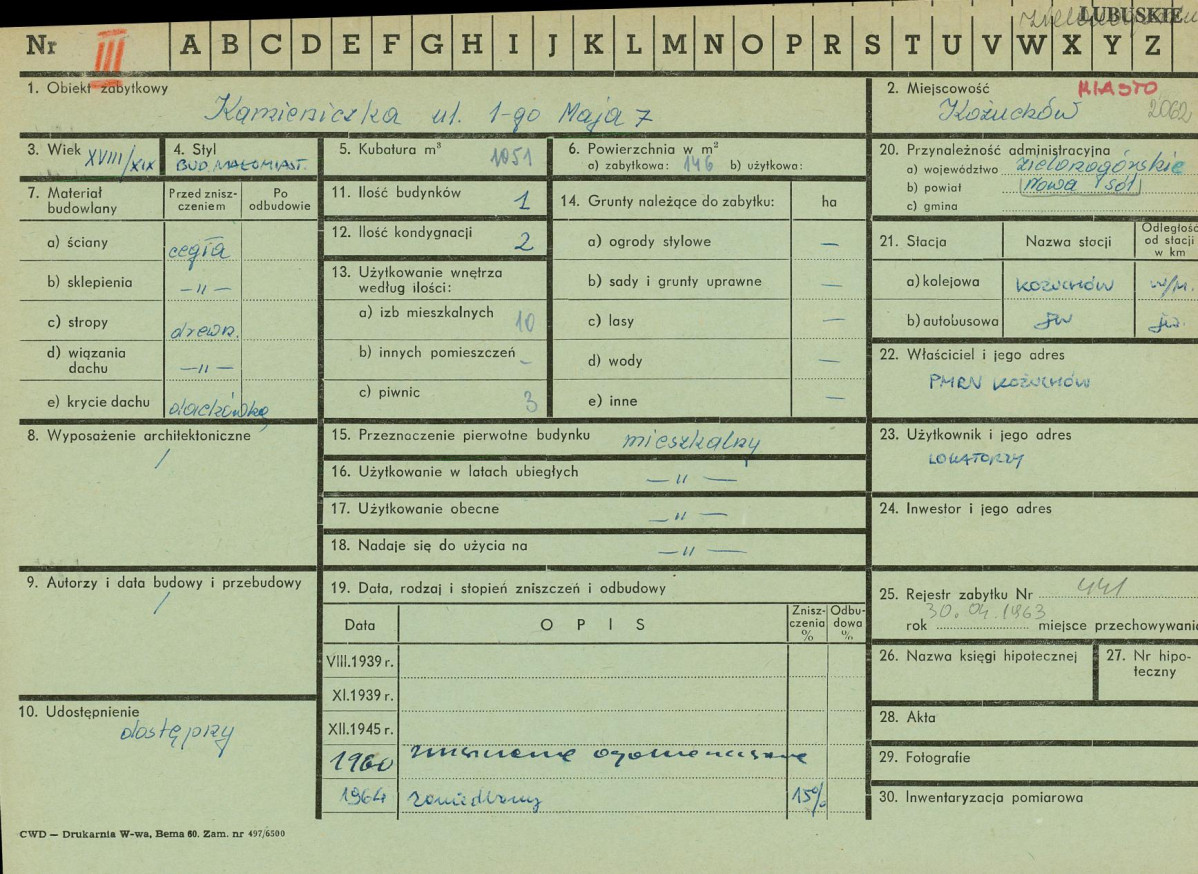 LUBUSKIE
Nr III A B C D E F G H I J K L M N O P R S T U V W X Y Z
1. Obiekt zabytkowy
Kamieniczka ul. 1-go Maja 7
2. Miejscowość MIASTO
Kożuchów 2062
3. Wiek XVIII/XIX
4. Styl
BUD. MAŁOMIAST.
5. Kubatura m³ 1051
6. Powierzchnia w m²
a) zabytkowa: 146 b) użytkowa:
20. Przynależność administracyjna
a) województwo zielonogórskie
b) powiat Nowa Sól
c) gmina
7. Materiał budowlany
Przed zniszczeniem
Po odbudowie
a) ściany cegła
b) sklepienia —„—
c) stropy drewn.
d) wiązania dachu —„—
e) krycie dachu dachówka
11. Ilość budynków 1
12. Ilość kondygnacji 2
13. Użytkowanie wnętrza
według ilości:
a) izb mieszkalnych 10
b) innych pomieszczeń -
c) piwnic 3
14. Grunty należące do zabytku: ha
a) ogrody stylowe —
b) sady i grunty uprawne —
c) lasy —
d) wody —
e) inne —
21. Stacja
Nazwa stocji
Odległość
od stacji
w km
a) kolejowa KOŻUCHÓW w/m.
b) autobusowa jw jw.
22. Właściciel i jego adres
PMRN KOŻUCHÓW
8. Wyposażenie architektoniczne
/
15. Przeznaczenie pierwotne budynku mieszkalny
16. Użytkowanie w latach ubiegłych —„—
17. Użytkowanie obecne —„—
18. Nadaje się do użycia na —„—
23. Użytkownik i jego adres
LOKATORZY
24. Inwestor i jego adres
9. Autorzy i data budowy i przebudowy
/
19. Data, rodzaj i stopień zniszczeń i odbudowy
Data
O P I S
Znisz-
czenia
%
Odbu-
dowa
%
VIII.1939 r.
XI.1939 r.
XII.1945 r.
1960
1964 zaniedbany 15%
25. Rejestr zabytku Nr 441
30.04.1963
rok miejsce przechowywania
26. Nazwa księgi hipotecznej
27. Nr hipo-
teczny
10. Udostępnienie
dostępny
28. Akta
29. Fotografie
30. Inwentaryzacja pomiarowa
CWD — Drukarnia W-wa, Bema 60. Zam. nr 497/6500